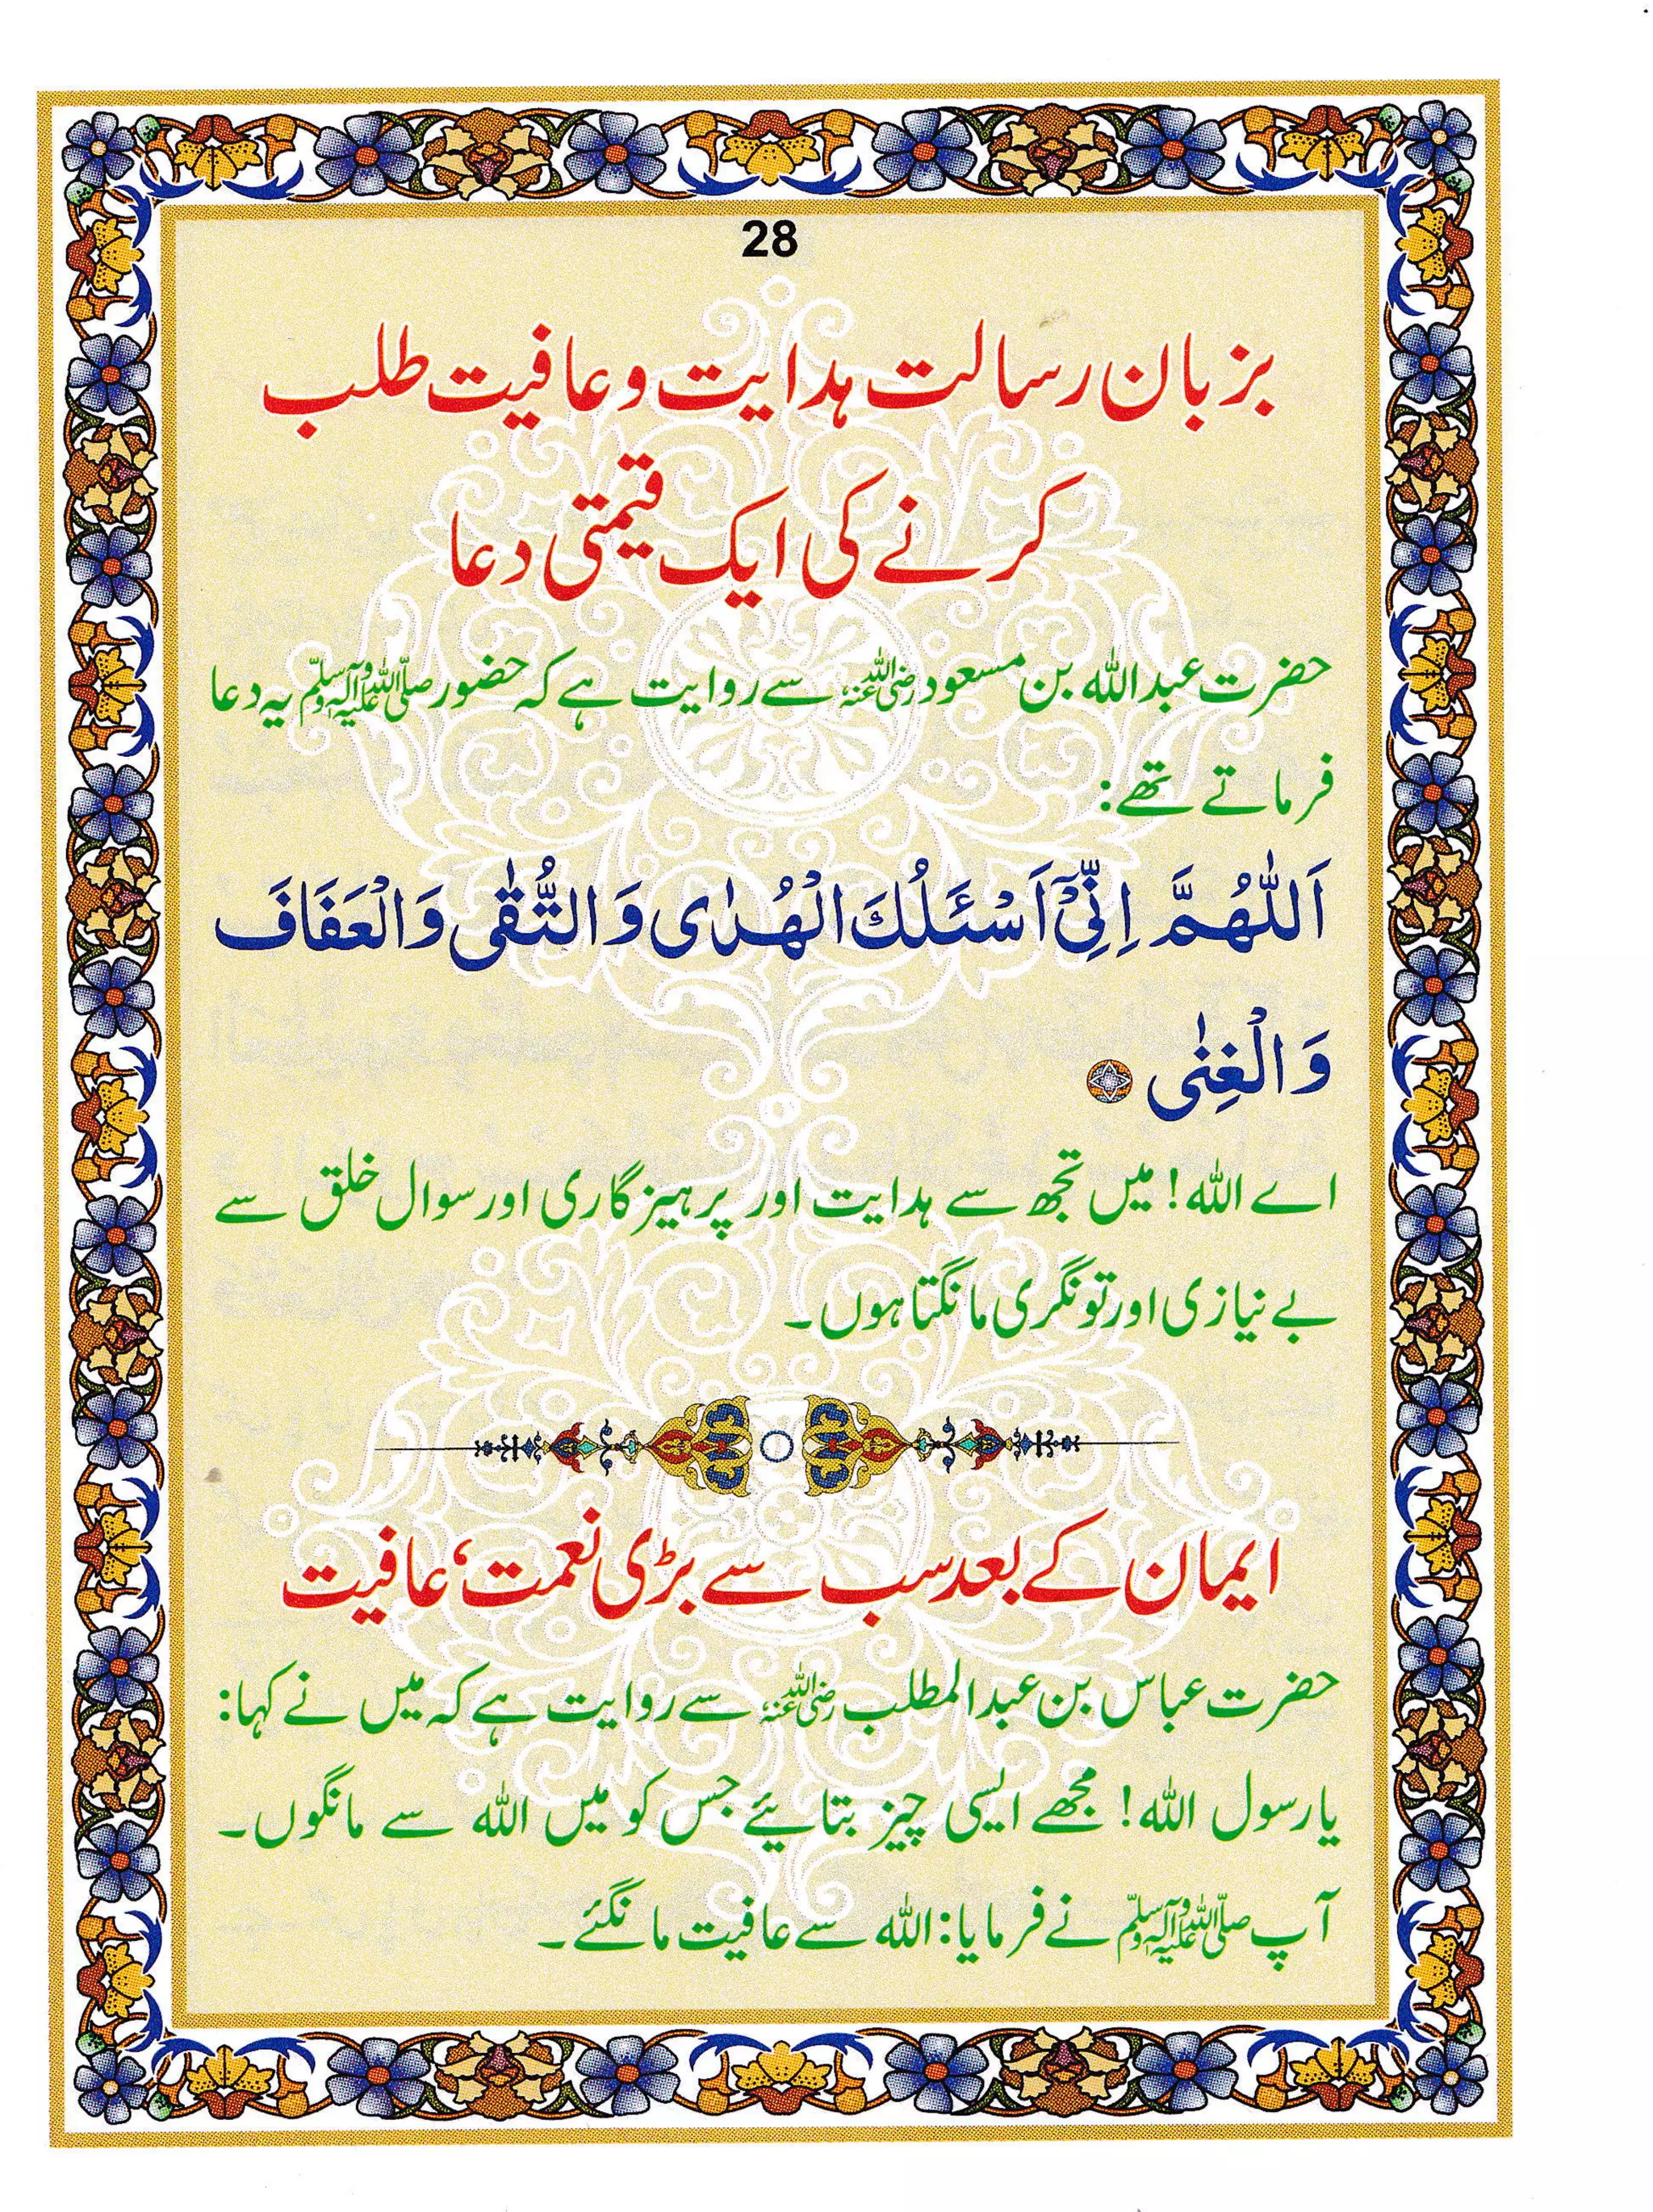 28
بزبان رسالت ہدایت و عافیت طلب
کرنے کی ایک قیمتی دعا
حضرت عبداللہ بن مسعود رضی اللہ عنہ سے روایت ہے کہ حضور صلی اللہ علیہ وآلہ وسلم یہ دعا
فرماتے تھے:
اَللّٰهُمَّ اِنِّیْۤ اَسْئَلُكَ الْهُدٰی وَ التُّقٰی وَالْعَفَافَ
وَالْغِنٰی
اے اللہ! میں تجھ سے ہدایت اور پرہیزگاری اور سوال خلق سے
بے نیازی اور تونگری مانگتا ہوں۔
ایمان کے بعد سب سے بڑی نعمت، عافیت
حضرت عباس بن عبدالمطلب رضی اللہ عنہ سے روایت ہے کہ میں نے کہا:
یارسول اللہ! مجھے ایسی چیز بتایئے جس کو میں اللہ سے مانگوں۔
آپ صلی اللہ علیہ وآلہ وسلم نے فرمایا: اللہ سے عافیت مانگئے۔